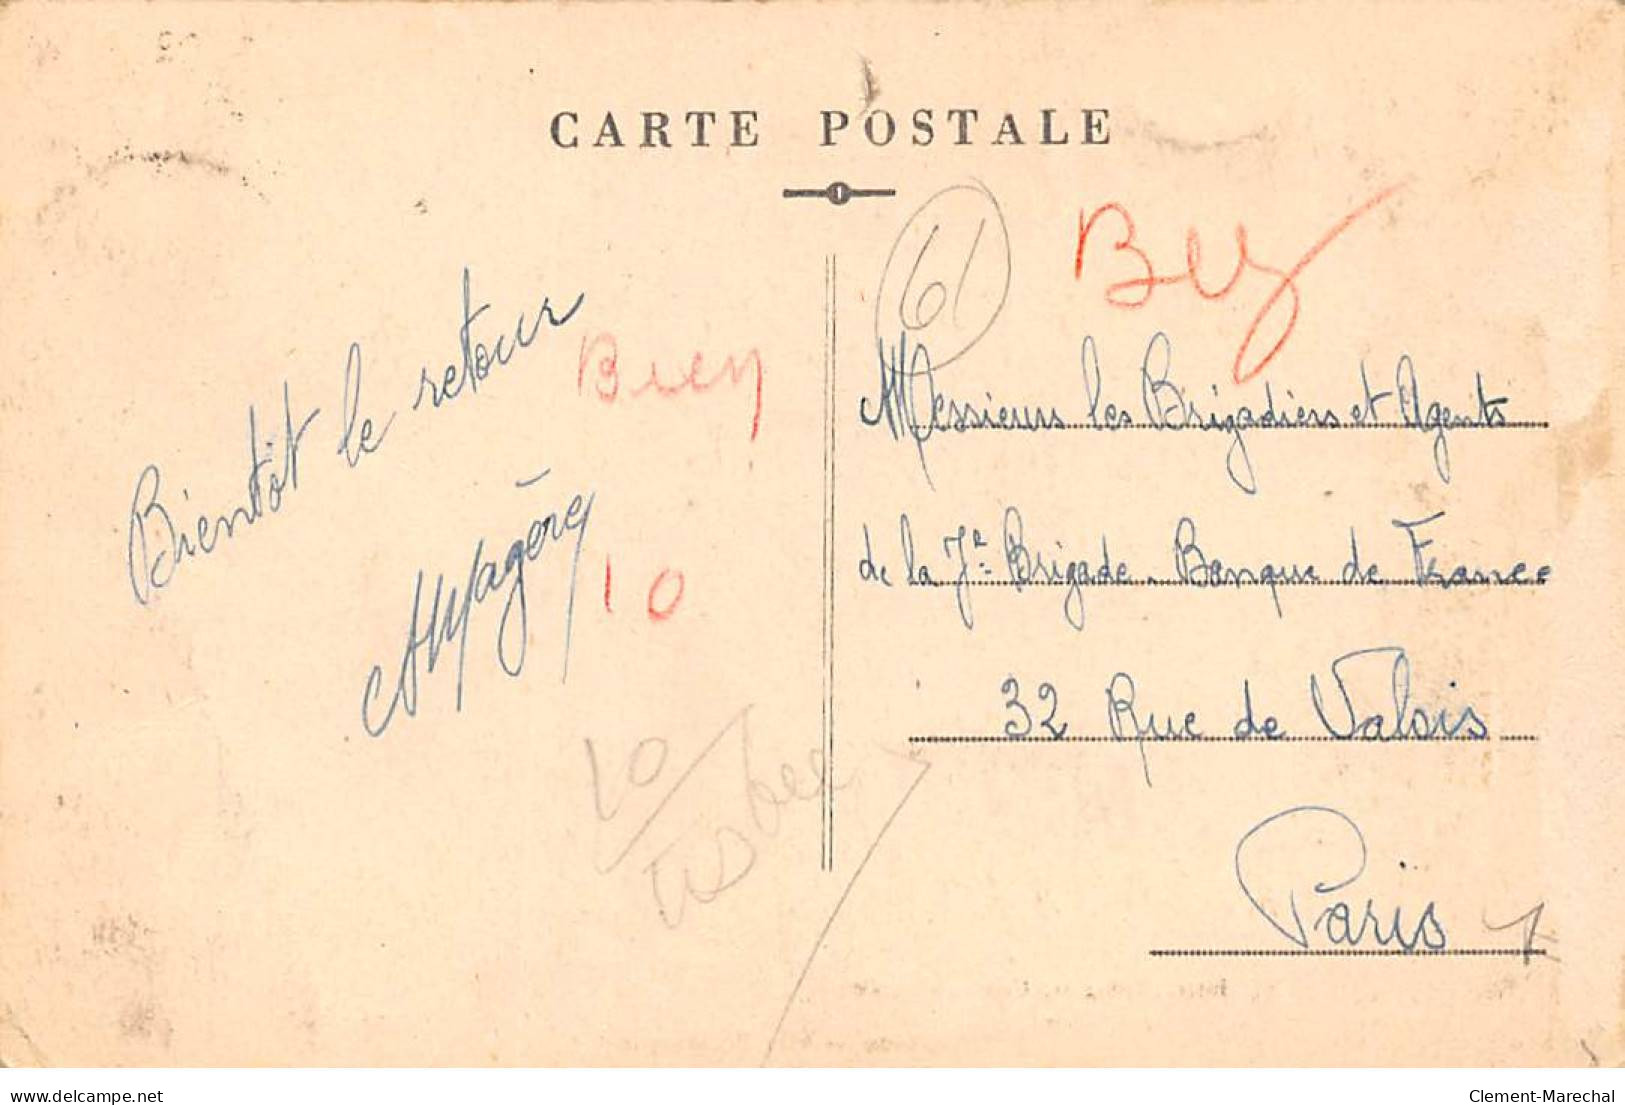 CARTE POSTALE
61
Bientôt le retour
10
Messieurs les Brigadiers et Agents
de la 7e Brigade. Banque de France
32 Rue de Valois
Paris
10
delcampe.net
Clement-Marechal